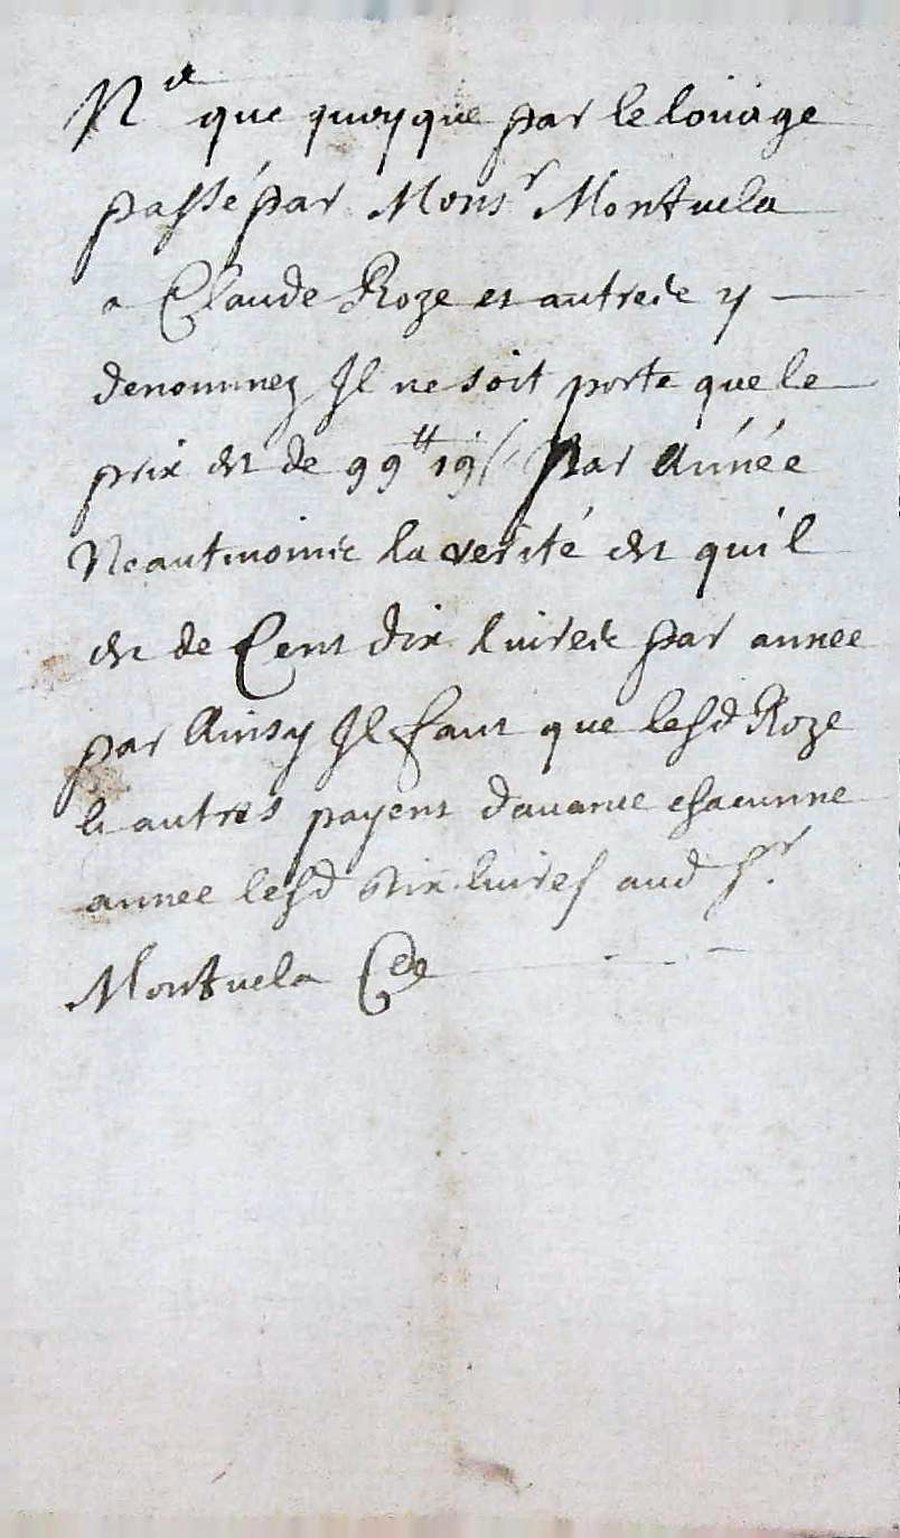 Na que quoyque par le louage
passé par Monsr Montucla
a Claude Roze et autres y
denommez Il ne soit porte que le
prix est de 99tt 19s par Année
Neautmoins la verité est qu'il
est de Cent dix livres par annee
par Ainsy Il faut que lesd Roze
& autres payent davance chacunne
annee lesd dix livres aud Sr.
Montucla